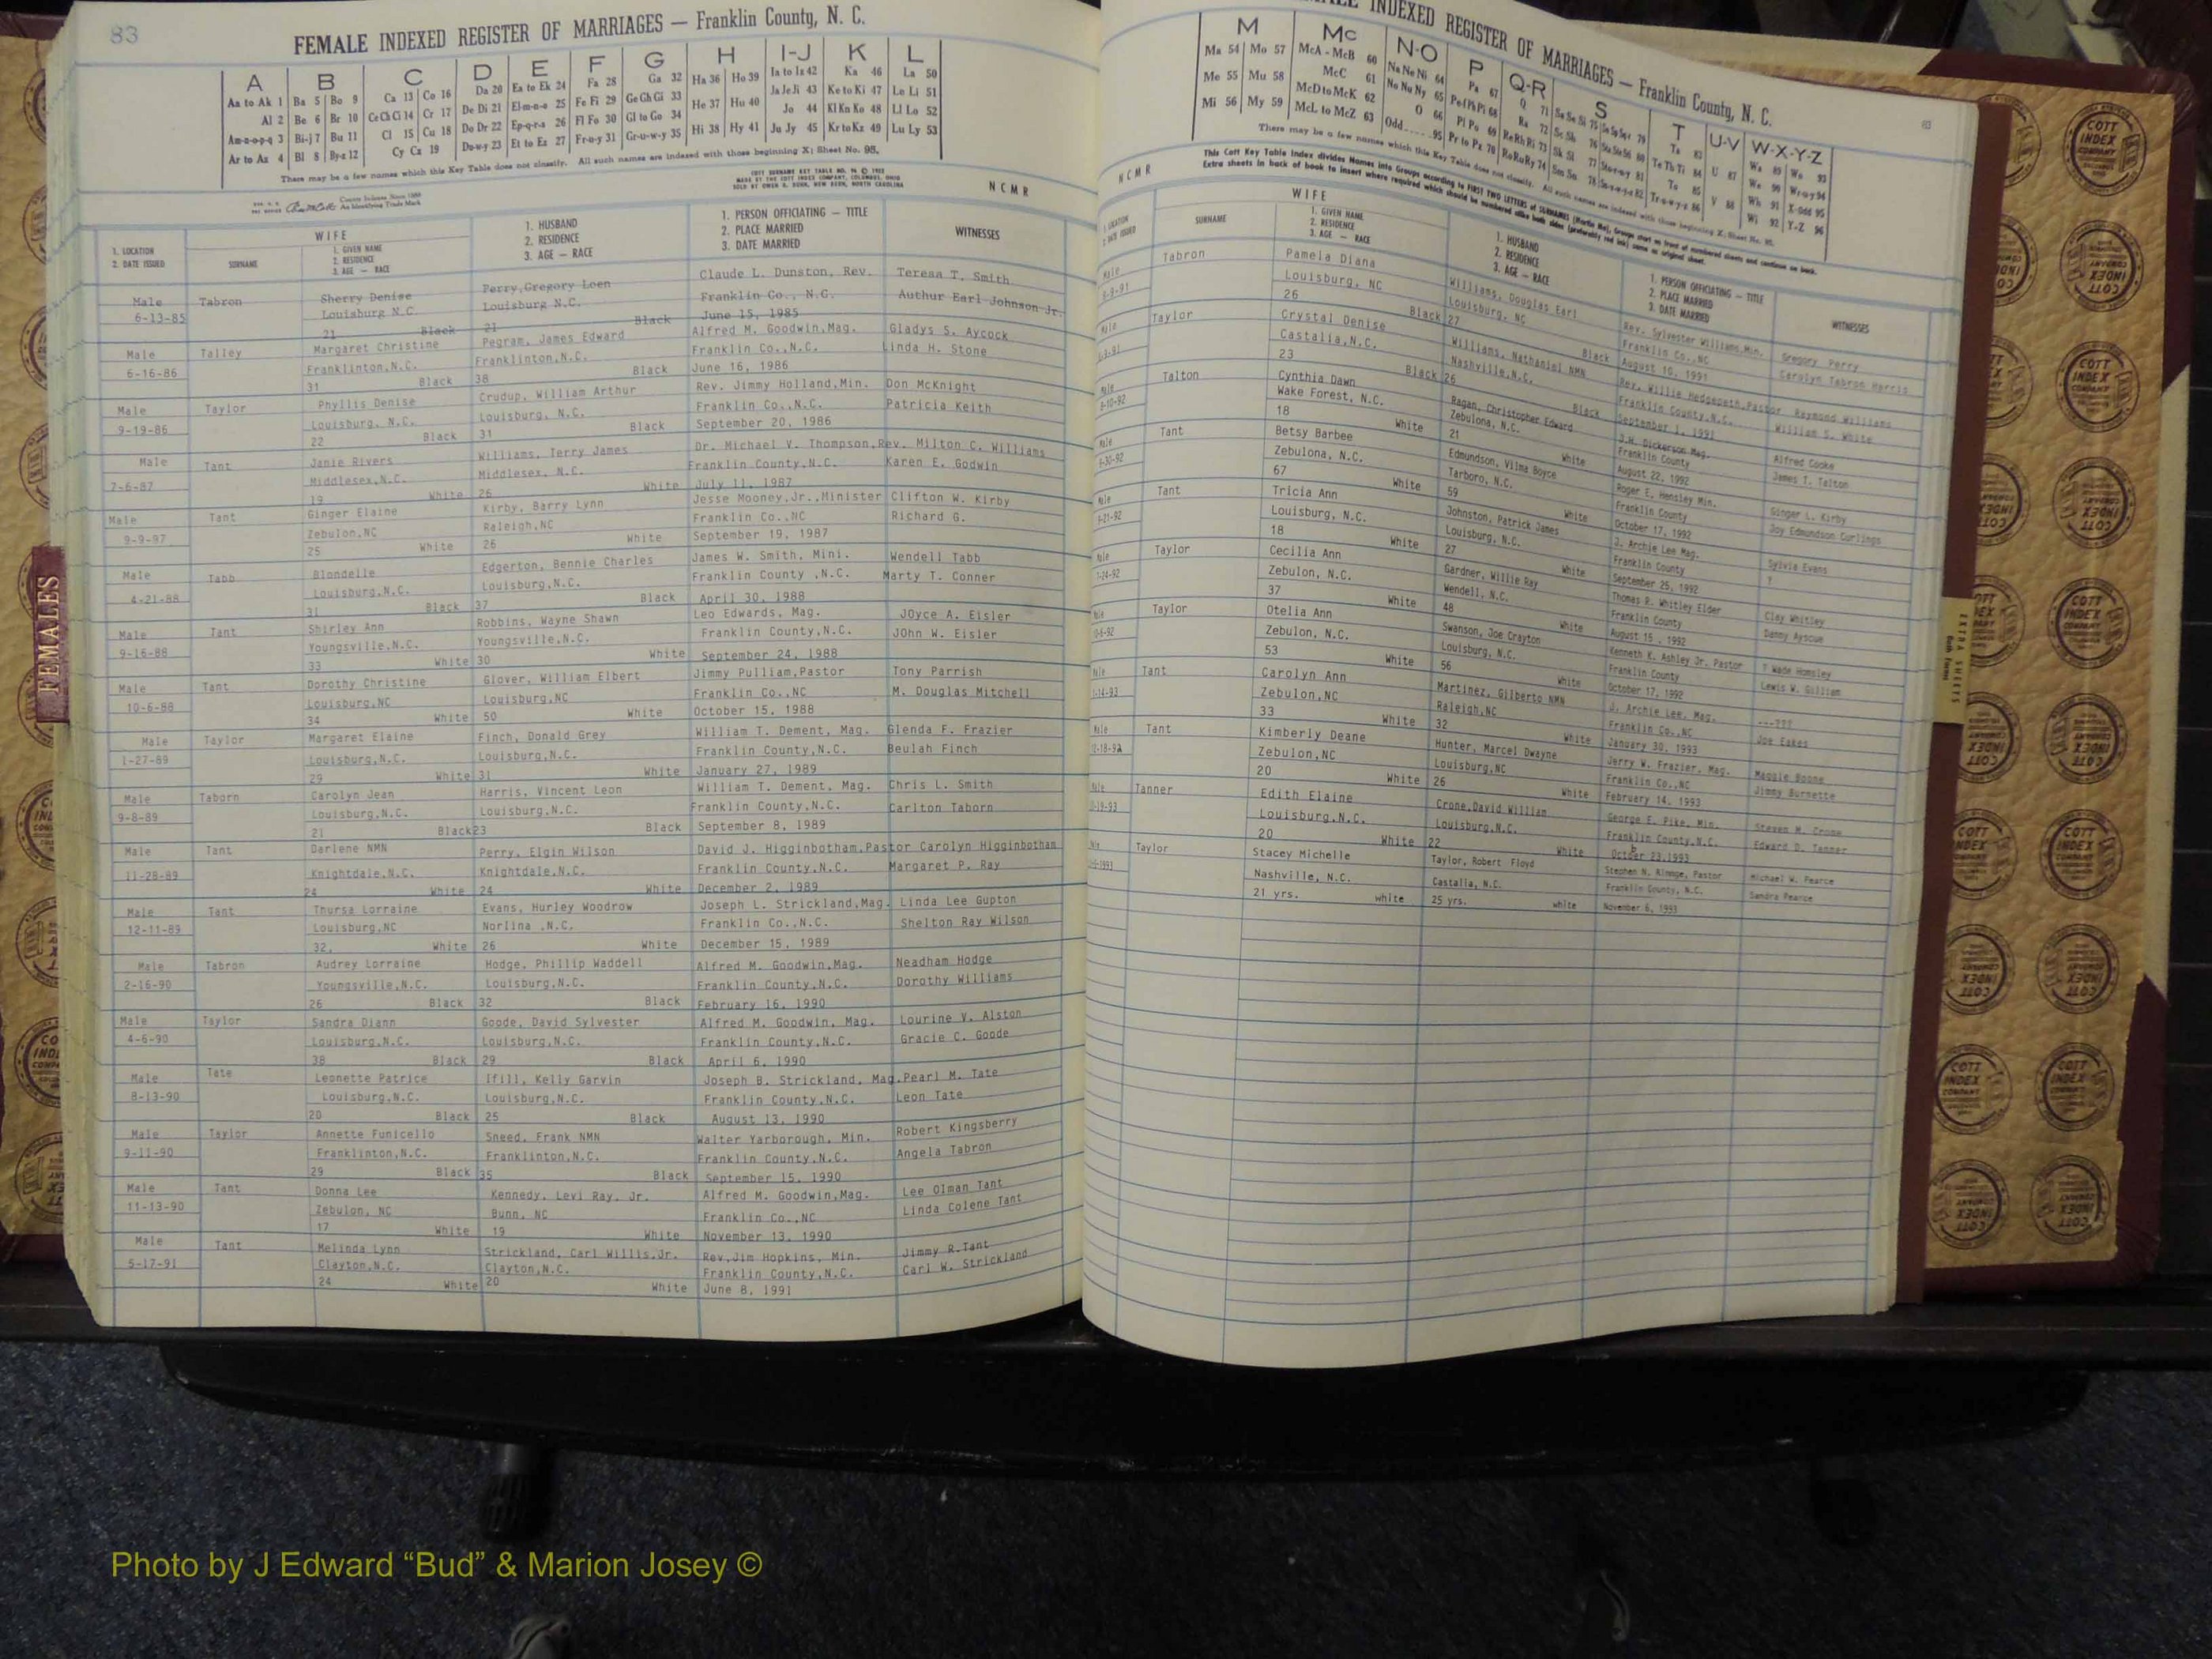 83
FEMALE INDEXED REGISTER OF MARRIAGES — Franklin County, N. C.
A B C D E F G H I-J K L
Aa to Ak 1 Ba 5 Bo 9 Ca 13 Co 16 Da 20 Ea to Ek 24 Fa 28 Ga 32 Ha 36 Ho 39 Ia to Iz 42 Ka 46 La 50
Al 2 Be 6 Br 10 Ce Ch Ci 14 Cr 17 De Di 21 El-m-n-o 25 Fe Fi 29 Ge Gh Gi 33 He 37 Hu 40 Ja Je Ji 43 Ke to Ki 47 Le Li 51
Am-n-o-p-q 3 Bi-j 7 Bu 11 Cl 15 Cu 18 Do Dr 22 Ep-q-r-s 26 Fl Fo 30 Gl to Go 34 Jo 44 Kl Kn Ko 48 Ll Lo 52
Ar to Az 4 Bl 8 By-z 12 Cy Cz 19 Du-w-y 23 Et to Ez 27 Fr-u-y 31 Gr-u-w-y 35 Hi 38 Hy 41 Ju Jy 45 Kr to Kz 49 Lu Ly 53
There may be a few names which this Key Table does not classify. All such names are indexed with those beginning X; Sheet No. 95.
NCMR
1. LOCATION
2. DATE ISSUED
WIFE
SURNAME
1. GIVEN NAME
2. RESIDENCE
3. AGE — RACE
1. HUSBAND
2. RESIDENCE
3. AGE — RACE
1. PERSON OFFICIATING — TITLE
2. PLACE MARRIED
3. DATE MARRIED
WITNESSES
Male Tabron Sherry Denise Perry,Gregory Loen Claude L. Dunston, Rev. Teresa T. Smith
6-13-85 Louisburg N.C. Louisburg N.C. Franklin Co., N.C. Authur Earl Johnson Jr.
21 Black 21 Black June 15, 1985
Male Talley Margaret Christine Pegram, James Edward Alfred M. Goodwin,Mag. Gladys S. Aycock
6-16-86 Franklinton,N.C. Franklinton,N.C. Franklin Co.,N.C. Linda H. Stone
31 Black 38 Black June 16, 1986
Male Taylor Phyllis Denise Crudup, William Arthur Rev. Jimmy Holland,Min. Don McKnight
9-19-86 Louisburg, N.C. Louisburg, N.C. Franklin Co.,N.C. Patricia Keith
22 Black 31 Black September 20, 1986
Male Tant Janie Rivers Williams, Terry James Dr. Michael V. Thompson,Rev. Milton C. Williams
7-6-87 Middlesex,N.C. Middlesex, N.C. Franklin County,N.C. Karen E. Godwin
19 White 26 White July 11, 1987
Male Tant Ginger Elaine Kirby, Barry Lynn Jesse Mooney,Jr.,Minister Clifton W. Kirby
9-9-97 Zebulon,NC Raleigh,NC Franklin Co.,NC Richard G.
25 White 26 White September 19, 1987
Male Tabb Blondelle Edgerton, Bennie Charles James W. Smith, Mini. Wendell Tabb
4-21-88 Louisburg,N.C. Louisburg,N.C. Franklin County ,N.C. Marty T. Conner
31 Black 37 Black April 30, 1988
Male Tant Shirley Ann Robbins, Wayne Shawn Leo Edwards, Mag. JOyce A. Eisler
9-16-88 Youngsville,N.C. Youngsville,N.C. Franklin County,N.C. JOhn W. Eisler
33 White 30 White September 24, 1988
Male Tant Dorothy Christine Glover, William Elbert Jimmy Pulliam,Pastor Tony Parrish
10-6-88 Louisburg,NC Louisburg,NC Franklin Co.,NC M. Douglas Mitchell
34 White 50 White October 15, 1988
Male Taylor Margaret Elaine Finch, Donald Grey William T. Dement, Mag. Glenda F. Frazier
1-27-89 Louisburg,N.C. Louisburg,N.C. Franklin County,N.C. Beulah Finch
29 White 31 White January 27, 1989
Male Taborn Carolyn Jean Harris, Vincent Leon William T. Dement, Mag. Chris L. Smith
9-8-89 Louisburg,N.C. Louisburg,N.C. Franklin County,N.C. Carlton Taborn
21 Black 23 Black September 8, 1989
Male Tant Darlene NMN Perry, Elgin Wilson David J. Higginbotham,Pastor Carolyn Higginbotham
11-28-89 Knightdale,N.C. Knightdale,N.C. Franklin County,N.C. Margaret P. Ray
24 White 24 White December 2, 1989
Male Tant Thursa Lorraine Evans, Hurley Woodrow Joseph L. Strickland,Mag. Linda Lee Gupton
12-11-89 Louisburg,NC Norlina ,N.C. Franklin Co.,N.C. Shelton Ray Wilson
32, White 26 White December 15, 1989
Male Tabron Audrey Lorraine Hodge, Phillip Waddell Alfred M. Goodwin,Mag. Needham Hodge
2-16-90 Youngsville,N.C. Louisburg,N.C. Franklin County,N.C. Dorothy Williams
26 Black 32 Black February 16, 1990
Male Taylor Sandra Diann Goode, David Sylvester Alfred M. Goodwin, Mag. Lourine V. Alston
4-6-90 Louisburg,N.C. Louisburg,N.C. Franklin County,N.C. Gracie C. Goode
38 Black 29 Black April 6, 1990
Male Tate Leonette Patrice Ifill, Kelly Garvin Joseph B. Strickland, Mag. Pearl M. Tate
8-13-90 Louisburg,N.C. Louisburg,N.C. Franklin County,N.C. Leon Tate
20 Black 25 Black August 13, 1990
Male Taylor Annette Funicello Sneed, Frank NMN Walter Yarborough, Min. Robert Kingsberry
9-11-90 Franklinton,N.C. Franklinton,N.C. Franklin County,N.C. Angela Tabron
29 Black 35 Black September 15, 1990
Male Tant Donna Lee Kennedy, Levi Ray, Jr. Alfred M. Goodwin,Mag. Lee Olman Tant
11-13-90 Zebulon, NC Bunn, NC Franklin Co.,NC Linda Colene Tant
17 White 19 White November 13, 1990
Male Tant Melinda Lynn Strickland, Carl Willis,Jr. Rev.Jim Hopkins, Min. Jimmy R.Tant
5-17-91 Clayton,N.C. Clayton,N.C. Franklin County,N.C. Carl W. Strickland
24 White 20 White June 8, 1991
INDEXED REGISTER OF MARRIAGES — Franklin County, N. C.
83
M Mc N-O P Q-R S T U-V W-X-Y-Z
Ma 54 Mo 57 McA - McB 60
Me 55 Mu 58 McC 61
Mi 56 My 59 McD to McK 62
McL to McZ 63
There may be a few names which this Key Table does not classify. All such names are indexed with those beginning X; Sheet No. 95.
NCMR
WIFE
SURNAME
1. GIVEN NAME
2. RESIDENCE
3. AGE — RACE
1. HUSBAND
2. RESIDENCE
3. AGE — RACE
1. PERSON OFFICIATING — TITLE
2. PLACE MARRIED
3. DATE MARRIED
WITNESSES
Male Tabron Pamela Diana Williams, Douglas Earl Rev. Sylvester Williams,Min. Gregory Perry
Louisburg, NC Louisburg, NC Franklin Co.,NC Carolyn Tabron Harris
26 Black 27 Black August 10, 1991
Male Taylor Crystal Denise Williams, Nathaniel NMN Rev. Willie Hedgepeth,Pastor Raymond Williams
Castalia,N.C. Nashville,N.C. Franklin County,N.C. William S. White
23 Black 26 Black September 1, 1991
Male Talton Cynthia Dawn Ragan, Christopher Edward J.H. Dickerson Mag. Alfred Cooke
Wake Forest, N.C. Zebulona, N.C. Franklin County James T. Talton
18 White 21 White August 22, 1992
Male Tant Betsy Barbee Edmundson, Vilma Boyce Roger E. Hensley Min. Ginger L. Kirby
Zebulona, N.C. Tarboro, N.C. Franklin County Joy Edmundson Curlings
67 White 59 White October 17, 1992
Male Tant Tricia Ann Johnston, Patrick James J. Archie Lee Mag. Sylvia Evans
Louisburg, N.C. Louisburg, N.C. Franklin County ?
18 White 27 White September 25, 1992
Male Taylor Cecilia Ann Gardner, Willie Ray Thomas R. Whitley Elder Clay Whitley
Zebulon, N.C. Wendell, N.C. Franklin County Danny Ayscue
37 White 48 White August 15 , 1992
Male Taylor Otelia Ann Swanson, Joe Crayton Kenneth K. Ashley Jr. Pastor T Wade Homsley
Zebulon, N.C. Louisburg, N.C. Franklin County Lewis W. Gilliam
53 White 56 White October 17, 1992
Male Tant Carolyn Ann Martinez, Gilberto NMN J. Archie Lee, Mag. ---???
Zebulon,NC Raleigh,NC Franklin Co.,NC Joe Eakes
33 White 32 White January 30, 1993
Male Tant Kimberly Deane Hunter, Marcel Dwayne Jerry W. Frazier, Mag. Maggie Boone
Zebulon,NC Louisburg,NC Franklin Co.,NC Jimmy Burnette
20 White 26 White February 14, 1993
Male Tanner Edith Elaine Crone,David William George E. Pike, Min. Steven M. Crone
Louisburg,N.C. Louisburg,N.C. Franklin County,N.C. Edward D. Tanner
20 White 22 White October 23,1993
Taylor Stacey Michelle Taylor, Robert Floyd Stephen N. Rimmge, Pastor Michael W. Pearce
Nashville, N.C. Castalia, N.C. Franklin County, N.C. Sandra Pearce
21 yrs. white 25 yrs. white November 6, 1993
FEMALES
EXTRA SHEETS
COTT INDEX COMPANY
Photo by J Edward “Bud” & Marion Josey ©